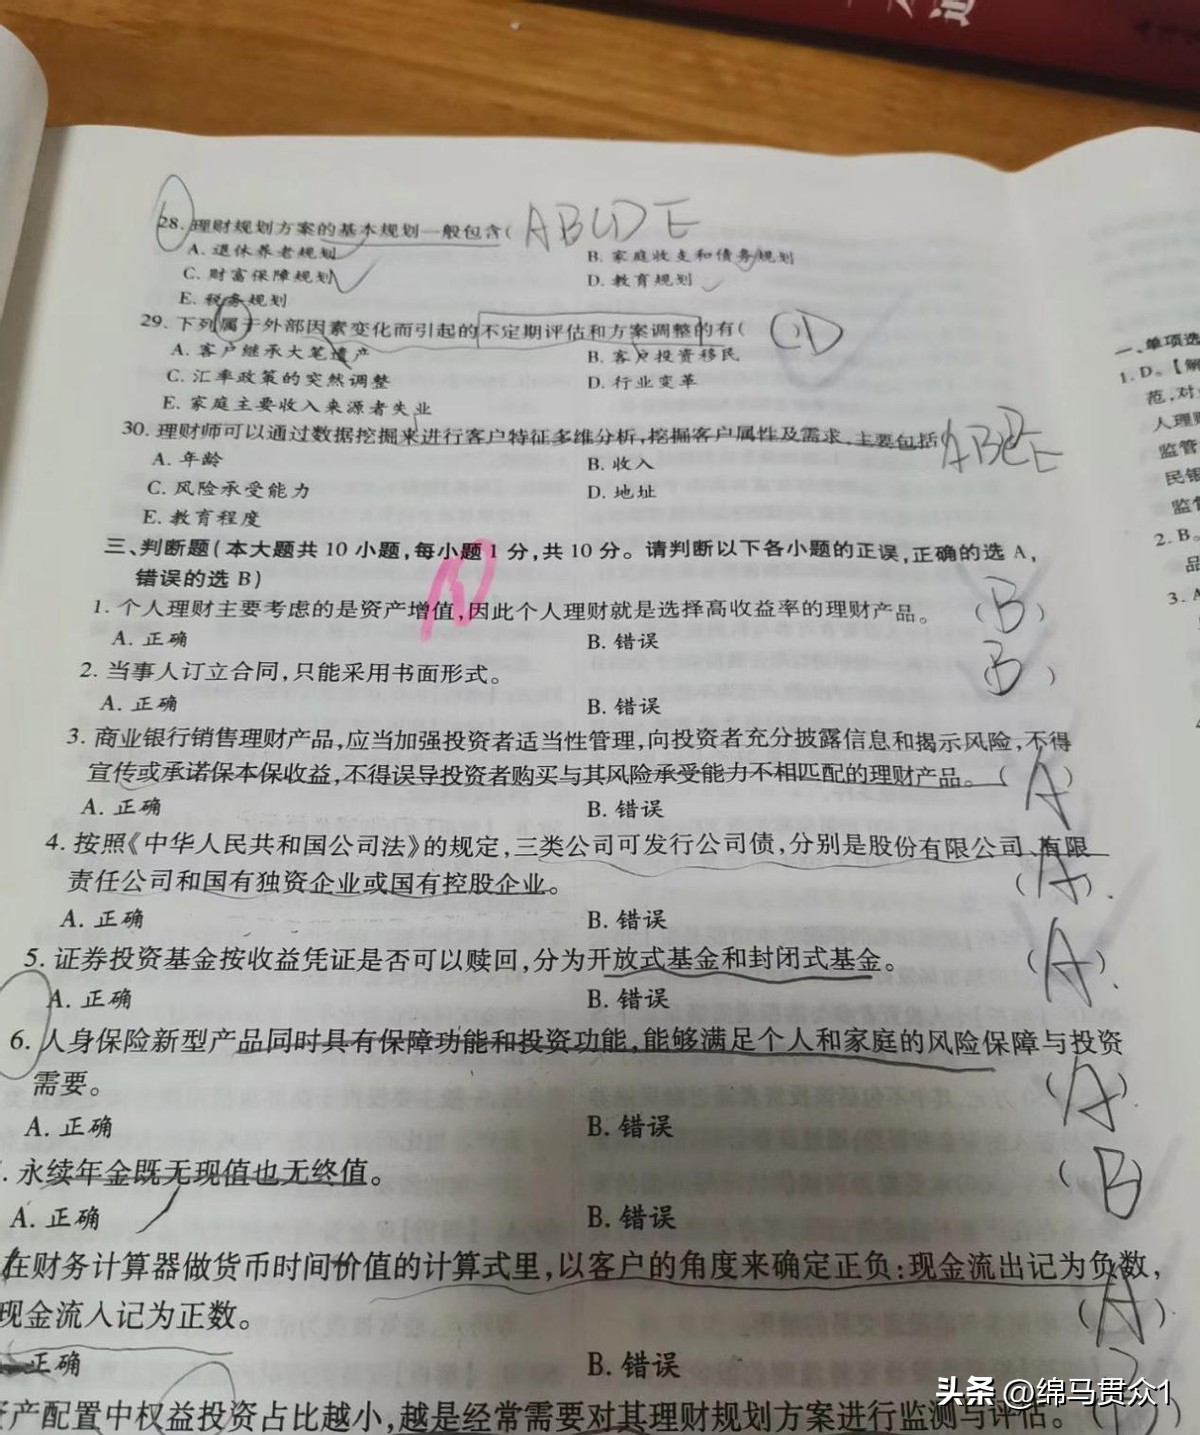 28. 理财规划方案的基本规划一般包含( ABCDE
A. 退休养老规划 B. 家庭收支和债务规划
C. 财富保障规划 D. 教育规划
E. 税务规划
29. 下列属于外部因素变化而引起的不定期评估和方案调整的有( CD
A. 客户继承大笔遗产 B. 客户投资移民
C. 汇率政策的突然调整 D. 行业变革
E. 家庭主要收入来源者失业
30. 理财师可以通过数据挖掘来进行客户特征多维分析,挖掘客户属性及需求,主要包括
A. 年龄 B. 收入
C. 风险承受能力 D. 地址
E. 教育程度
三、判断题(本大题共 10 小题,每小题 1 分,共 10 分。请判断以下各小题的正误,正确的选 A,
错误的选 B)
1. 个人理财主要考虑的是资产增值,因此个人理财就是选择高收益率的理财产品。 (B)
A. 正确 B. 错误
2. 当事人订立合同,只能采用书面形式。 B)
A. 正确 B. 错误
3. 商业银行销售理财产品,应当加强投资者适当性管理,向投资者充分披露信息和揭示风险,不得
宣传或承诺保本保收益,不得误导投资者购买与其风险承受能力不相匹配的理财产品。 (A)
A. 正确 B. 错误
4. 按照《中华人民共和国公司法》的规定,三类公司可发行公司债,分别是股份有限公司、有限
责任公司和国有独资企业或国有控股企业。 (A)
A. 正确 B. 错误
5. 证券投资基金按收益凭证是否可以赎回,分为开放式基金和封闭式基金。 (A)
A. 正确 B. 错误
6. 人身保险新型产品同时具有保障功能和投资功能,能够满足个人和家庭的风险保障与投资
需要。 (A)
A. 正确 B. 错误
. 永续年金既无现值也无终值。 (B
A. 正确 B. 错误
在财务计算器做货币时间价值的计算式里,以客户的角度来确定正负:现金流出记为负数,
现金流入记为正数。 (A)
正确 B. 错误
产配置中权益投资占比越小,越是经常需要对其理财规划方案进行监测与评估。
一、单项选
1. D。【解
范,对
人理财
监管
民银
监管
2. B。
品
3. A
头条 @绵马贯众1